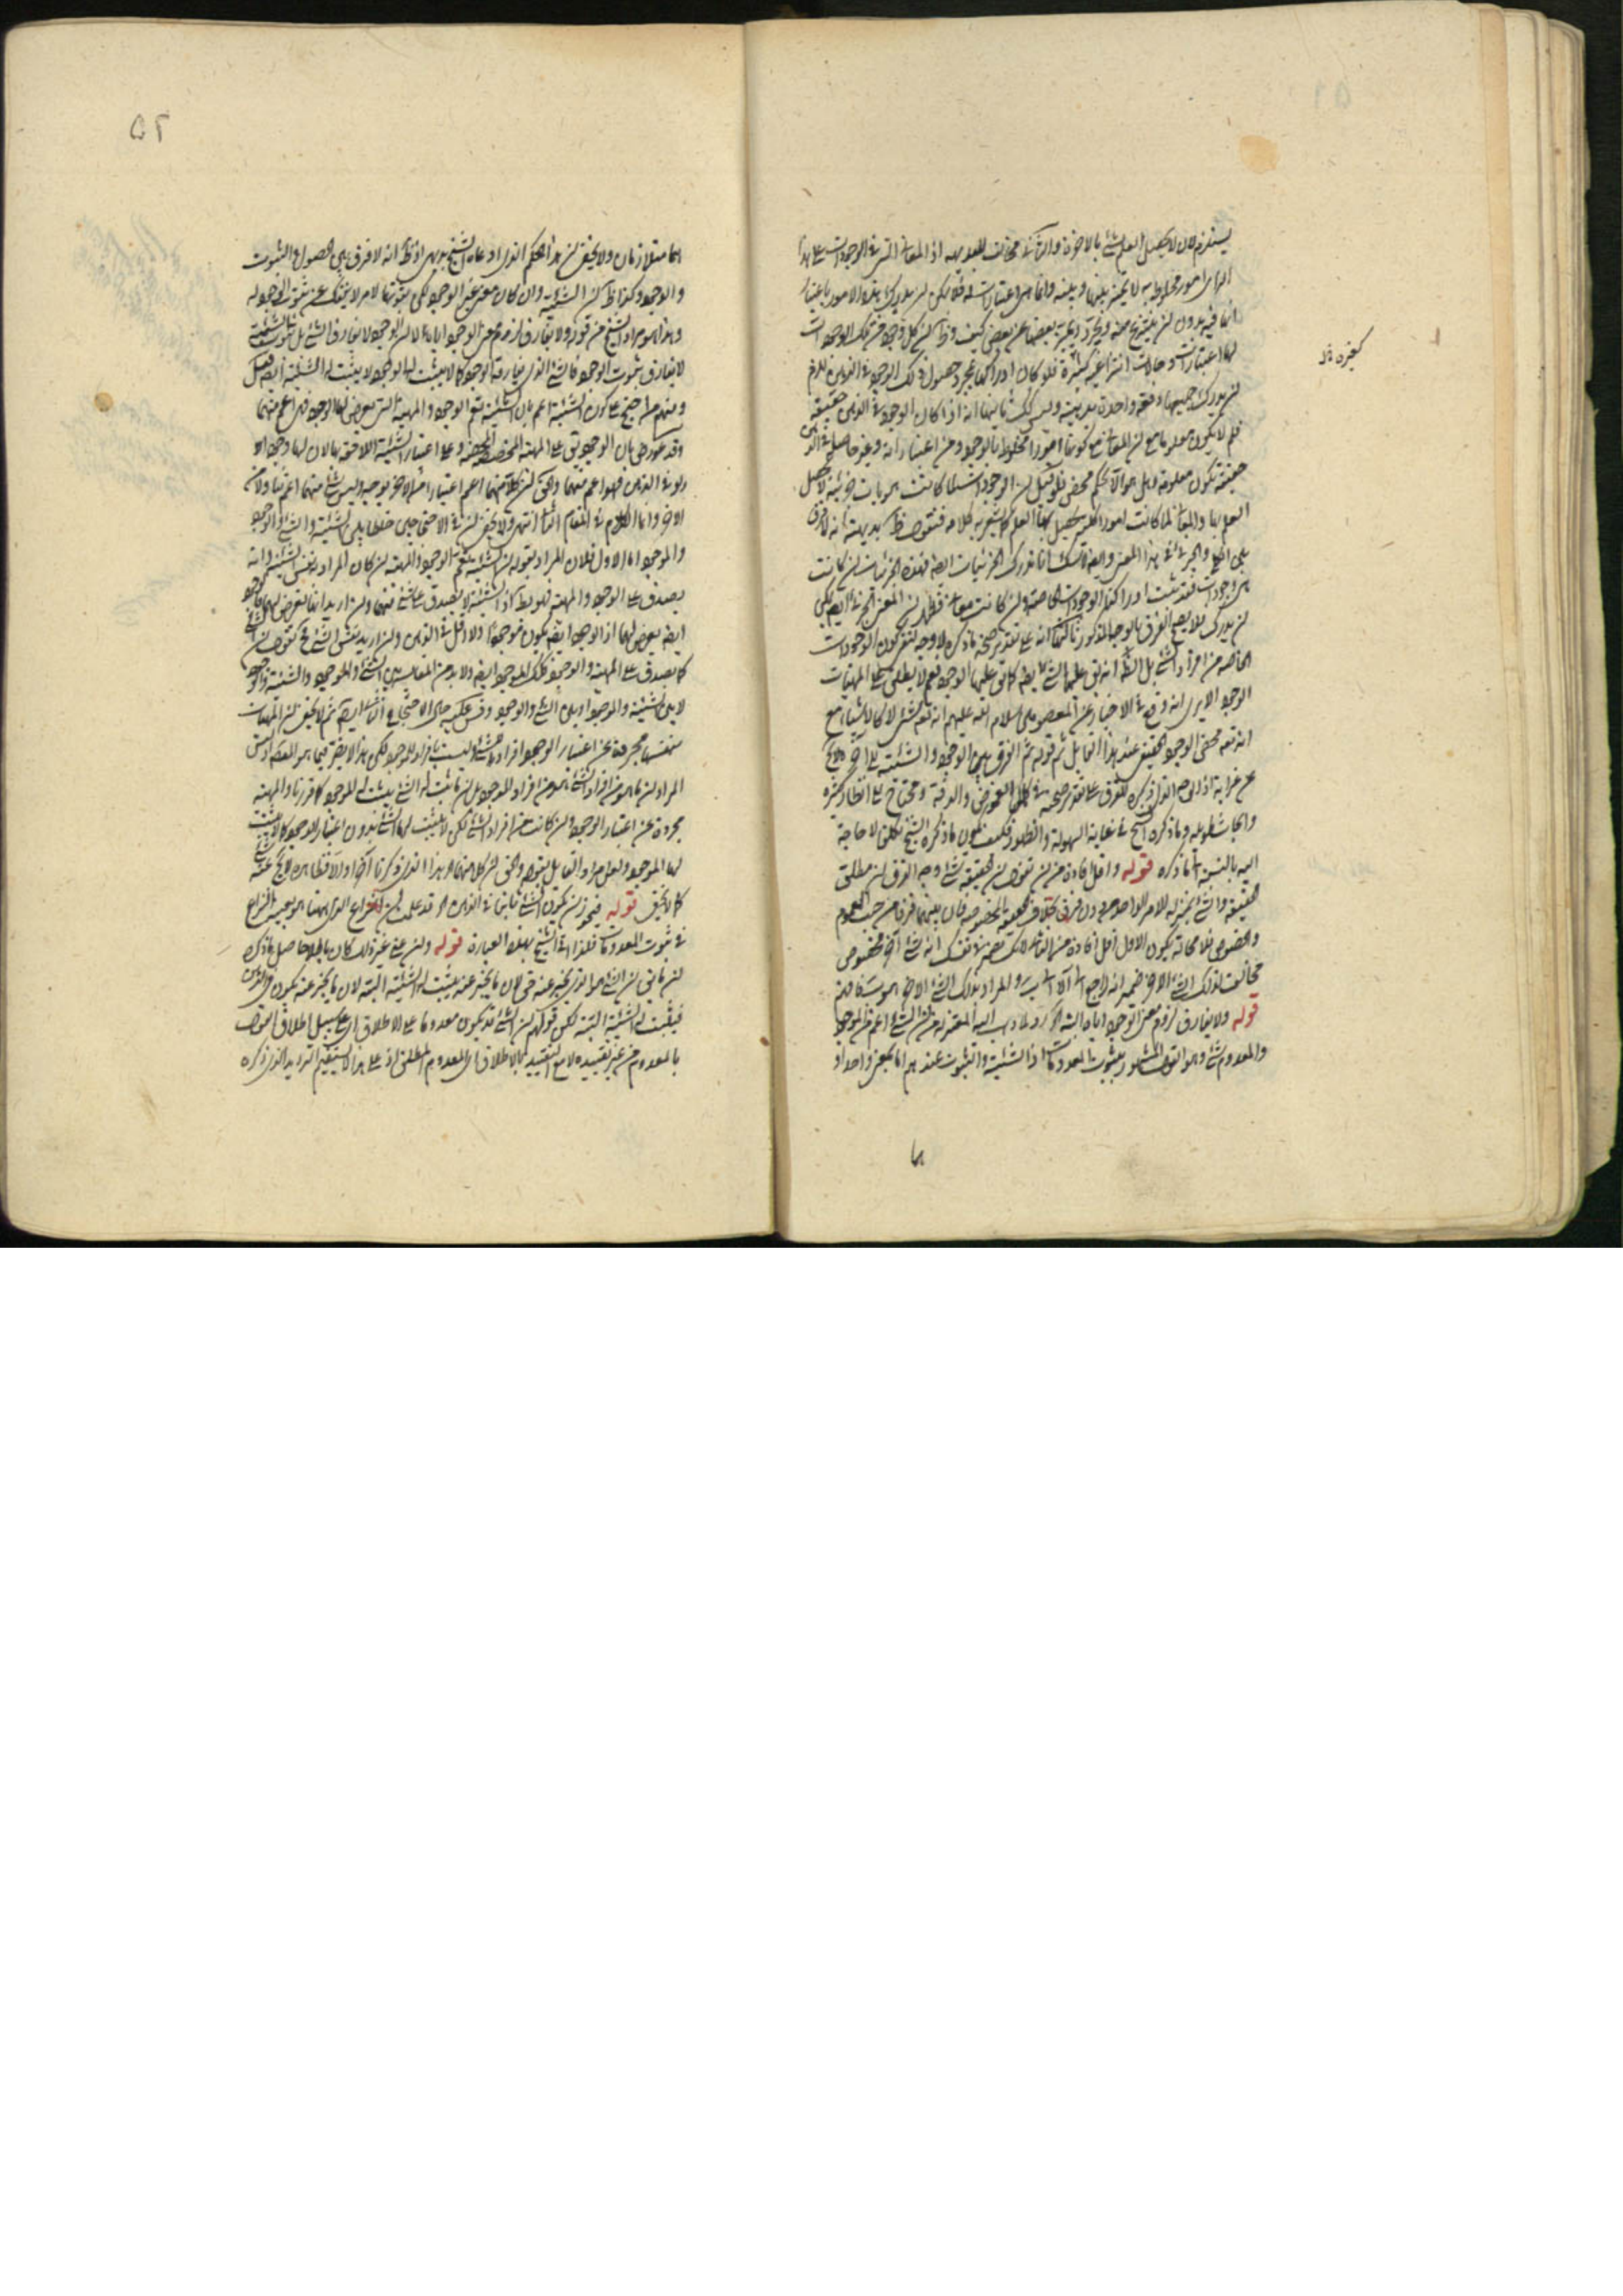 يستلزم ان لا يحصل العلم بشئ بالاخرة والتالى مخالف للبديهة اذ المعانى التى فى الوجودات على هذا
الراى امور مخلوط به لا تميز بينها وبينه وانما هى اعتبارات له فلا يمكن ان يدرك هذه الامور باعتبار
انها فيه بدون ان
لها اعتبارات وحالات انتزاعية كثيرة فلو كان ادراكها بمجرد حصول ذلك الوجود فى الذهن للزم
ان يدرك جميعها دفعة واحدة بديهية وليس كك ثانيها انه اذا كان الوجود فى الذهن حقيقة
فلم لا يكون معلوما مع ان المعانى مع كونها امورا مخلوطا بالوجود ومن اعتباراته وغير حاصلة فى الذهن
حقيقة تكون معلومة وهل هو الا تحكم محض فلو قيل ان الوجودات لما كانت هويات جزئية لا يحصل
العلم بها والمعانى لما كانت امورا كلية يحصل بها العلم كما يشعر به كلامه فنقول ظ بديهة انه لا فرق
بين الكلى والجزئى فى هذا المعنى وايضا لا شك انا ندرك الجزئيات ايضا فهذه الجزئيات ان كانت
هى وجودات فقد ثبت ادراكنا الوجودات الخاصة وان كانت معانى فظهر ان المعنى الجزئى ايضا يمكن
ان يدرك فلا يصح الفرق بالوجه المذكور ثالثها انه على تقدير صحة ما ذكره لا وجه لنفى كون الوجودات
الخاصة من افراد الشئ بل الظ انه يق عليها الشئ ايضا كما يق عليها الوجود نعم لا يطلق على المهيات
الوجود الا يرى انه وقع فى الاخبار عن المعصومين سلام الله عليهم انه تعه شئ لا كالاشياء مع
انه تعه محض الوجود الحقيقى عند هذا القايل ثم قوله ثم الفرق بين الوجود والشيئية
عن غرابة اذ الوجه الذى ذكره للفرق على تقدير صحته فى كمال الغموض والدقة ومحتاج الى انظار كثيرة
وابحاث طويلة وما ذكره الشيخ فى غاية السهولة والظهور فكيف يكون ما ذكره الشيخ تكلف لا حاجة
اليه بالنسبة الى ما ذكره قوله واقل افادة من ان تقول ان حقيقة شئ وجه الفرق ان مطلق
حقيقة والشئ بمنزلة الامر الواحد بدون فرق بخلاف الحقيقة المخصوصة فان بينهما فرقا من حيث العموم
والخصوص فلا محالة يكون الاول اقل افادة من الثانى قوله انه شئ آخر مخصوص
مخالف لذلك الشئ الاخر ضمير انه راجع الى والمراد بذلك الشئ الاخر هو
قوله ولا يفارق لزوم معنى الوجود اياه البتة آه رد لما ذهب اليه المعتزلة من ان الشئ اعم من الموجود
والمعدوم شئ وهو القول المشهور بثبوت المعدومات اذ الشيئية والثبوت عندهم اما بمعنى واحد او
هما
كغيره ظ
٥٢
هما متلازمان ولا يخفى ان هذا الحكم الذى ادعاه الشيخ بديهى اذ ظ انه لا فرق بين الحصول والثبوت
والوجود وكذا ظ ان الشيئية وان كان معنى غير الوجود لكن ثبوتها لامر لا ينفك عن ثبوت الوجود له
وهذا هو مراد الشيخ من قوله ولا يفارق لزوم معنى الوجود اياه لا ان الوجود لا يفارق الشئ بل ثبوت الشيئية
لا يفارق ثبوت الوجود فالشئ الذى يفارقه الوجود كما لا يثبت له الوجود لا يثبت له الشيئية ايضا فضل
ومنهم من احتج على كون الشيئية اعم بان الشيئية تعم الوجود والمهية التى يعرض لها الوجود فهى اعم منهما
وقد عورض بان الوجود يق على المهية المخصصة المحضة وعلى اعتبار الشيئية اللاحقة بها لان لها وجودا ولو
ولو فى الذهن فهو اعم منهما والحق ان كلا منهما اعم اعتبارا من الاخر بوجه وليس شئ منهما اعم تناولا من
الاخر وانما الكلام فى المقام الثانى انتهى ولا يخفى ان فى الاحتجاجين خلطا بين الشيئية والشئ والوجود
والموجود اما الاول فلان المراد بقوله ان الشيئية تعم الوجود والمهية ان كان المراد به نفس الشيئية وانه
يصدق على الوجود والمهية فهو بط اذ الشيئية لا تصدق على شئ منهما وان اريد انها تعرض لهما فالوجود
ايضا يعرض لهما اذ الوجود ايضا يكون موجودا ولا اقل فى الذهن وان اريد بنفس الشئ فح نقول ان الشئ
كما يصدق على المهية والوجود فكك الموجود ايضا ولابد من المقايسة بين الشئ والموجود والشيئية والوجود
لا بين الشيئية والموجود او بين الشئ والوجود وقس عليه حال الاحتجاج الثانى ايضا ثم لا يخفى ان المهيات
نفسها مجردة عن اعتبار الوجود افراد للشئ وليست بافراد للموجود لكن هذا لا يضر فيما هو المقصود اذ ليس
المراد ان ما هو من افراد الشئ فهو من افراد الموجود بل ان ما ثبت له الشئ يثبت له الموجود كما قررنا والمهية
مجردة عن اعتبار الوجود وان كانت من افراد الشئ لكن لا يثبت لها الشئ بدون اعتبار الوجود كما لا يثبت
لها الموجود ولعل مراد القايل بقوله والحق ان كلا منهما آه هذا الذى ذكرنا آخرا والا فظاهره لا يخ عن شئ
كما لا يخفى قوله فيجوز ان يكون الشئ ثابتا فى الذهن آه قد علمت ان النزاع الذى ههنا هو بعينه النزاع
فى ثبوت المعدومات فلذا اتى الشيخ بهذه العبارة قوله وان عنى غير ذلك كان باطلا حاصل ما ذكره
ان ما يق ان الشئ هو الذى يخبر عنه حق لان ما يخبر عنه يثبت له الشيئية البتة لان ما يخبر عنه يكون فى الذهن
فيثبت له الشيئية البتة لكن قولهم ان الشئ قد يكون معدوما على الاطلاق ان على سبيل اطلاق القول
بالمعدوم من غير تقييده لا مع التقييد بالاطلاق اى المعدوم المطلق اذ على هذا لا يستقيم الترديد الذى ذكره